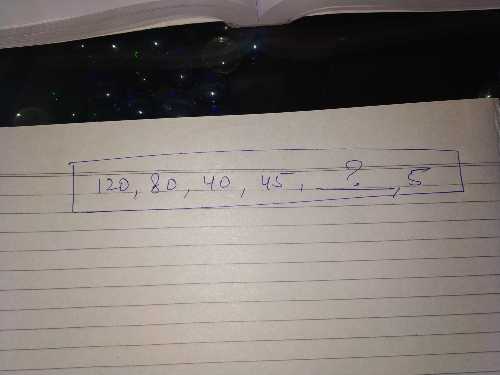 120, 80, 40, 45, ?, 5